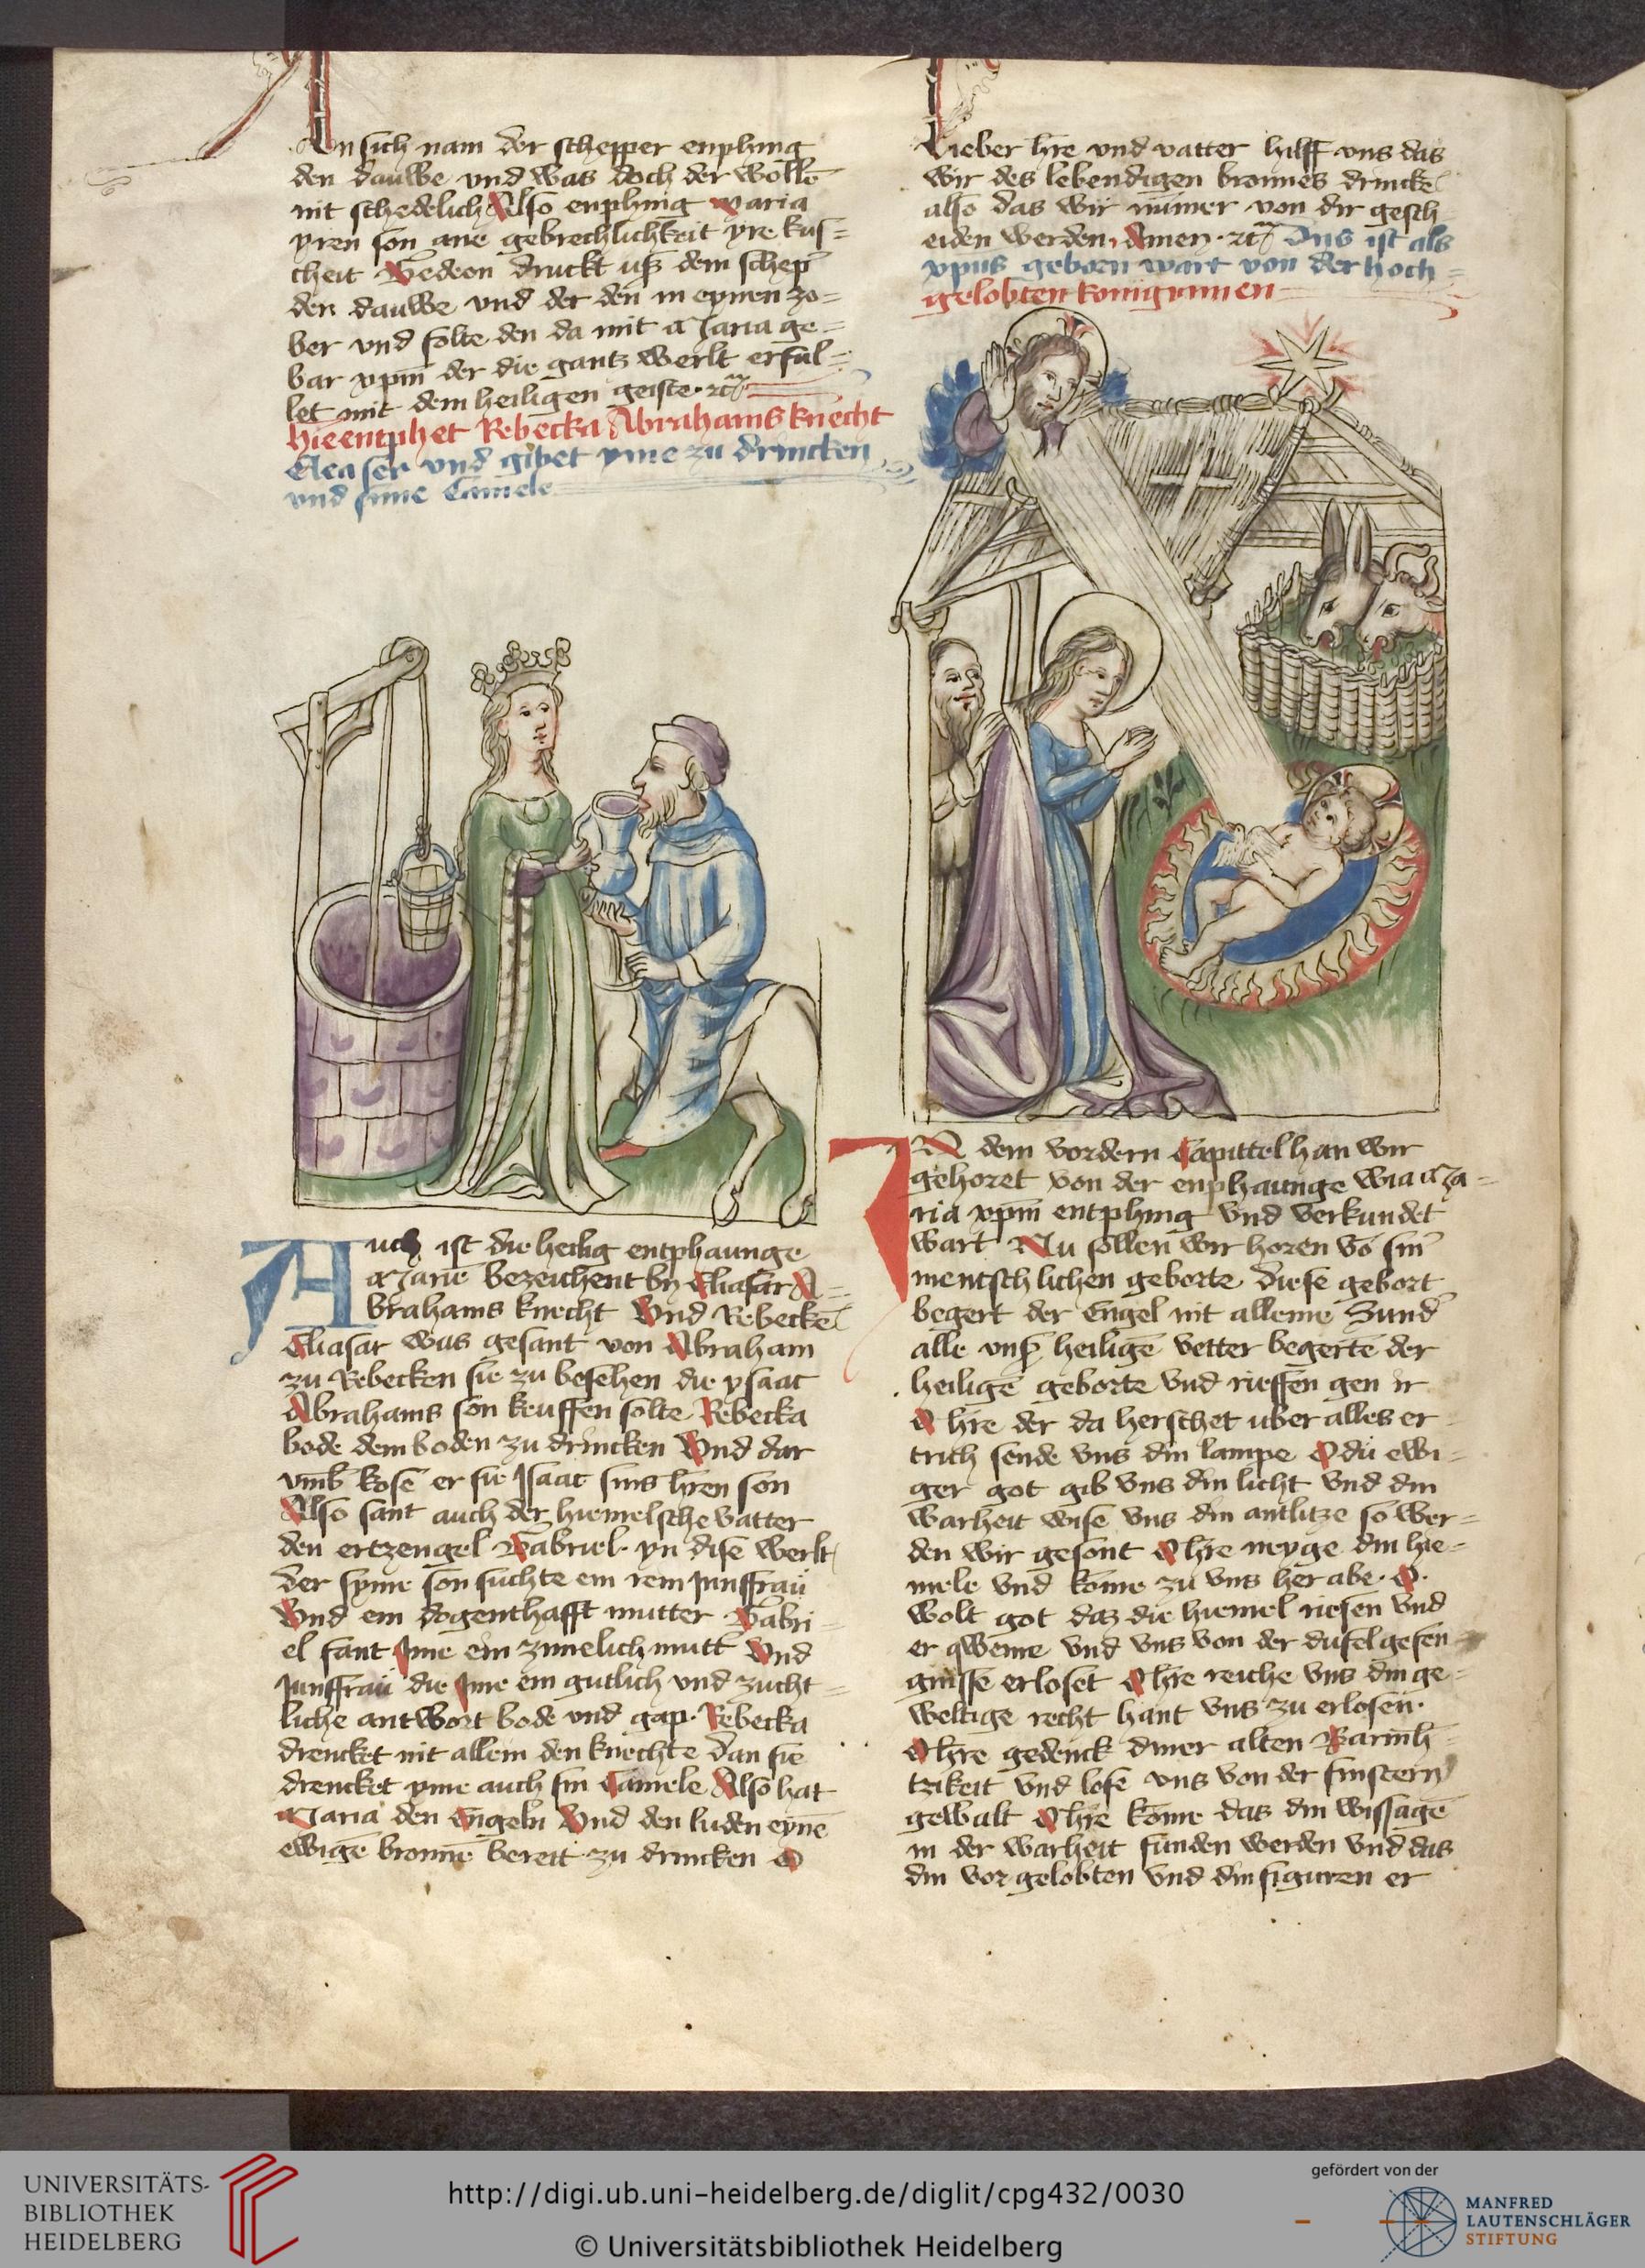 An sich nam der schepper enphing
den dauwe vnd was doch der wolle
nit schedelich Also enphing maria
yren son ane gebrechlichkeit yre kus=
cheit Gedeon druckt uß dem schep
den dauwe vnd det den in eynen zo=
ber vnd folte den da mit Maria ge=
bar xpm der die gantz werlt erful=
let mit dem heiligen geiste
hie entphet Rebecka Abrahams knecht
Eleaser vnd gibet yme zu drincken
vnd sime Camele
Auch ist die heilig entphaunge
Marie bezeichent by Eliasar A=
brahams knecht Vnd Rebecke
Eliasar was gesant von Abraham
zu Rebecken sie zu besehen die ysaac
Abrahams son keuffen solte Rebecka
bode dem boden zu drincken Vnd dar
vmb kose er sie Isaac sins hren son
Also sant auch der hiemelsche vatter
den ertzengel Gabriel yn dise werlt
der syme son suchte ein rein Junffrau
Vnd ein dogenthafft mutter Gabri=
el fant Ime ein zimelich mutt Vnd
Junffrau die Ime ein gutlich vnd zucht=
liche antwort bode vnd gap Rebecka
drencket nit allein den knechte dan sie
drencket yme auch sin Camele Also hat
Maria den Engeln Vnd den luden eyne
ewige bronne bereit zu drincken O
Lieber hre vnd vatter hilff vns das
wir des lebendigen bronnes drincke
also das wir numer von dir gesch=
eiden werden, Amen. Dis ist als
xpus geborn wart von der hoch=
gelobten konigynnen
IN dem vordern Capittel han wir
gehoret von der enphaunge wia Ma=
ria xpm entphing Vnd verkundet
wart Nu sollen wir horen vo sin
mentschlichen geborte diese gebort
begert der Engel nit alleine Sund
alle vnser heilige vetter begerte der
heilige geborte Vnd rieffen gen ir
O hre der da herschet uber alles er=
trich sende vns din lampe O du ewi=
ger got gib vns din licht Vnd din
warheit wise vns din antlitze so wer=
den wir gesont O hre neyge din hie=
mele vnd kome zu vns her abe. O.
wolt got daz die hiemel riesen Vnd
er qweme vnd vns von der dufel gefen=
gnisse erloset O hre reiche vns din ge=
weltige recht hant vns zu erlosen.
O hre gedenck diner alten Barmh=
tzikeit vnd lose vns von der finstern
gewalt O hre kome das din wissage
in der warheit funden werden vnd das
din vor gelobten vnd din figuren er
UNIVERSITÄTS-
BIBLIOTHEK
HEIDELBERG
http://digi.ub.uni-heidelberg.de/diglit/cpg432/0030
© Universitätsbibliothek Heidelberg
gefördert von der
MANFRED
LAUTENSCHLÄGER
STIFTUNG